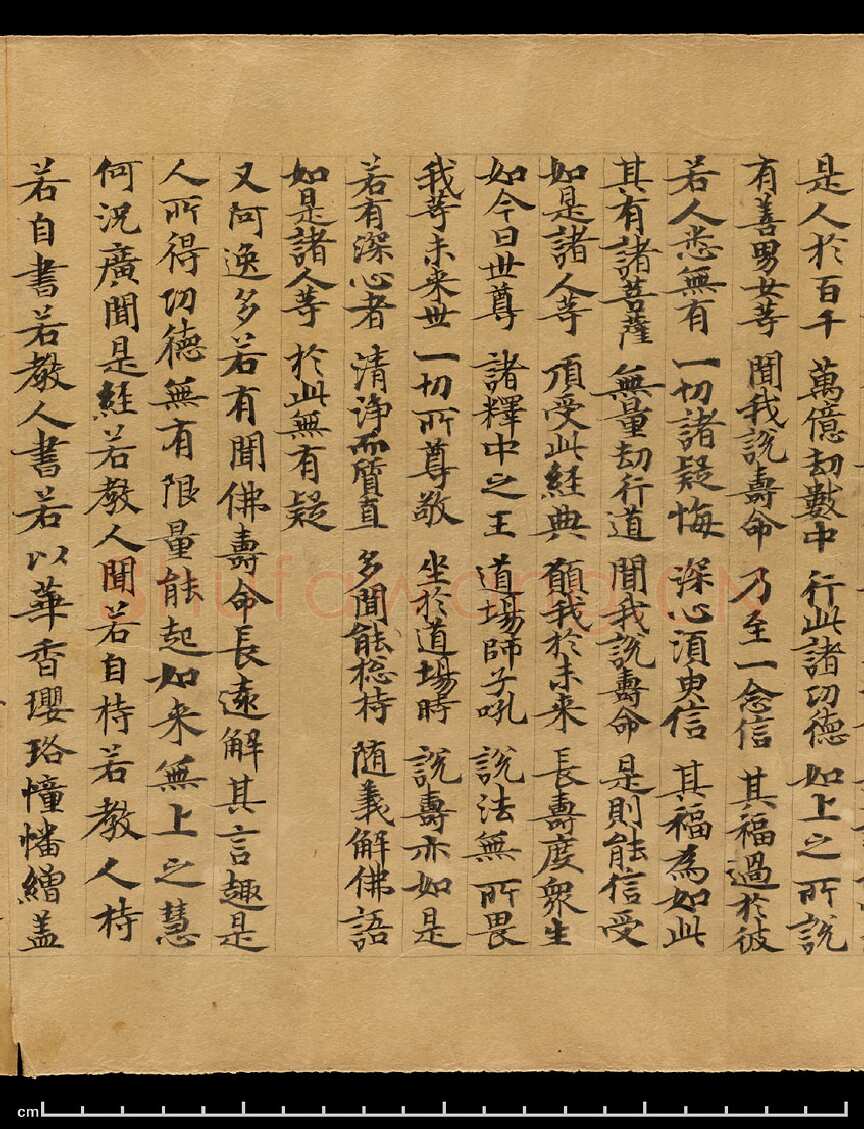 是人於百千 萬億劫數中 行此諸功德 如上之所說
有善男女等 聞我說壽命 乃至一念信 其福過於彼
若人悉無有 一切諸疑悔 深心須臾信 其福為如此
其有諸菩薩 無量劫行道 聞我說壽命 是則能信受
如是諸人等 頂受此經典 願我於未来 長壽度衆生
如今日世尊 諸釋中之王 道場師子吼 說法無所畏
我等未来世 一切所尊敬 坐於道場時 說壽亦如是
若有深心者 清淨而質直 多聞能捴持 随義解佛語
如是諸人等 於此無有疑
又阿逸多若有聞佛壽命長遠解其言趣是
人所得功德無有限量能起如来無上之慧
何況廣聞是經若教人聞若自持若教人持
若自書若教人書若以華香瓔珞幢幡繒盖
shufawang.CN
cm